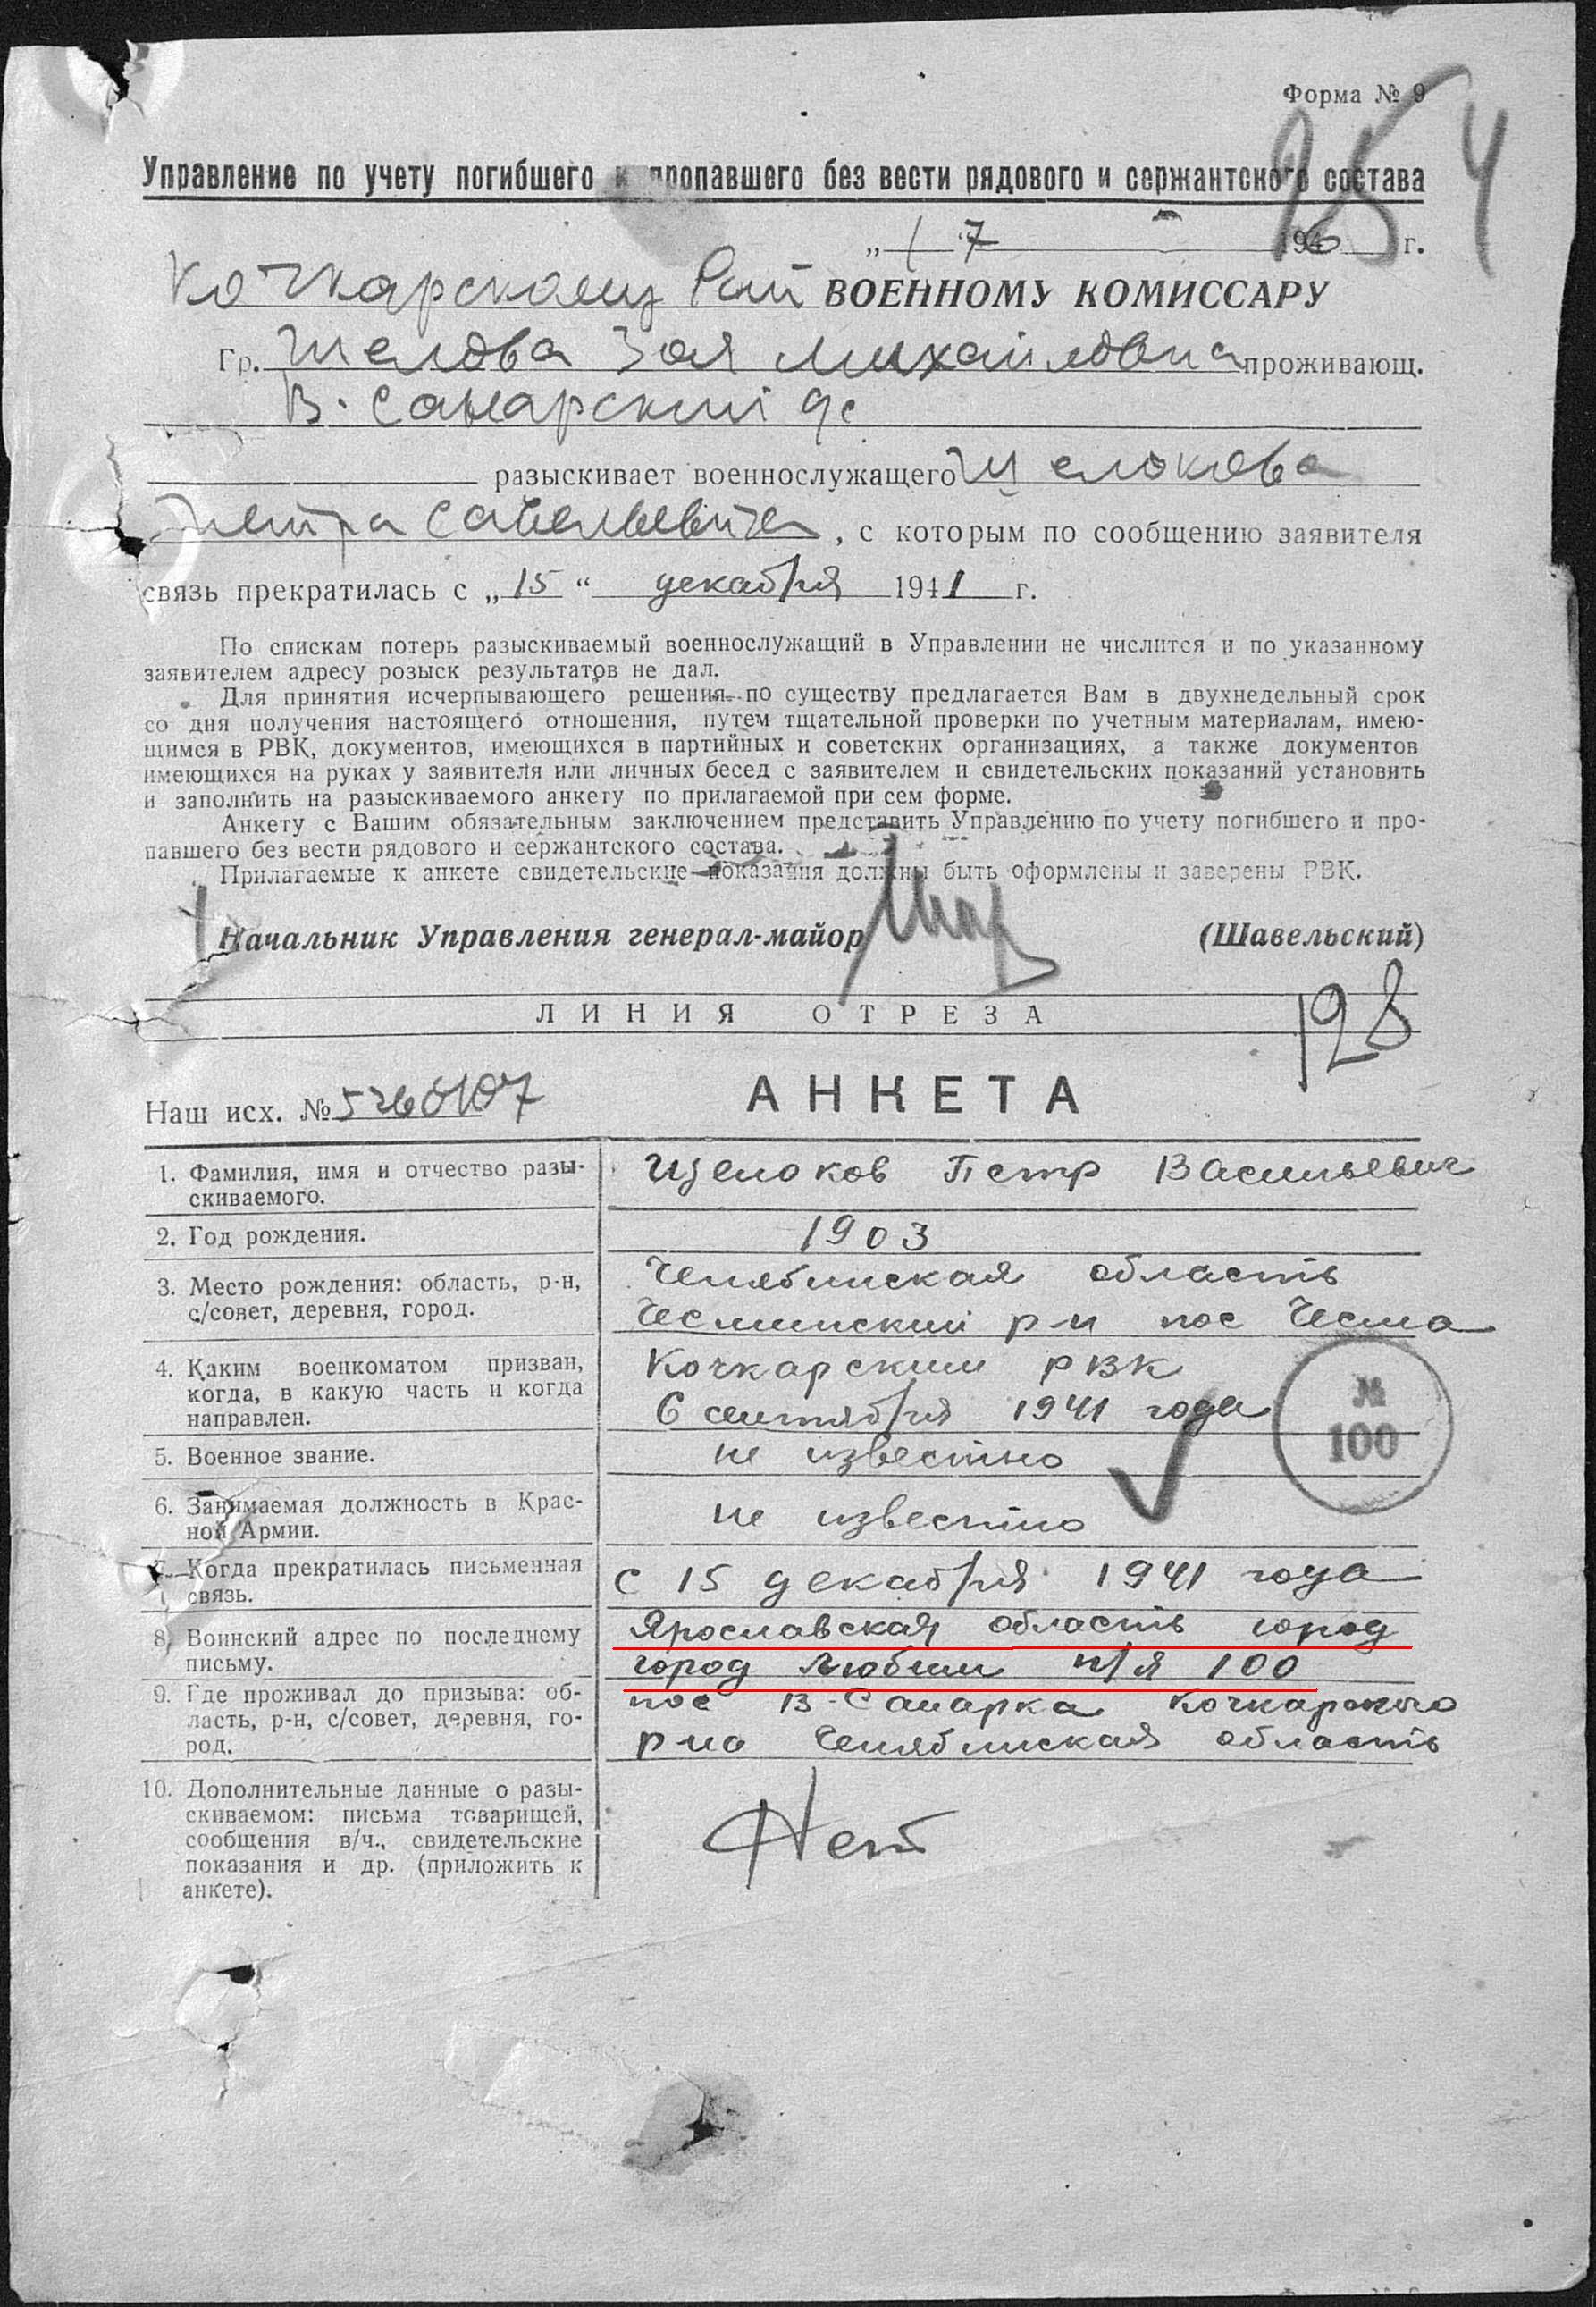 Форма № 9
254
Управление по учету погибшего и пропавшего без вести рядового и сержантского состава
„ 1 “ 7 1946 г.
Кочкарскому Рай ВОЕННОМУ КОМИССАРУ
Гр. Зоя Михайловна проживающ.
В. Санарский
разыскивает военнослужащего Щелокова
Петра Савельевича, с которым по сообщению заявителя
связь прекратилась с „15“ декабря 1941 г.
По спискам потерь разыскиваемый военнослужащий в Управлении не числится и по указанному
заявителем адресу розыск результатов не дал.
Для принятия исчерпывающего решения по существу предлагается Вам в двухнедельный срок
со дня получения настоящего отношения, путем тщательной проверки по учетным материалам, имею-
щимся в РВК, документов, имеющихся в партийных и советских организациях, а также документов
имеющихся на руках у заявителя или личных бесед с заявителем и свидетельских показаний установить
и заполнить на разыскиваемого анкету по прилагаемой при сем форме.
Анкету с Вашим обязательным заключением представить Управлению по учету погибшего и про-
павшего без вести рядового и сержантского состава.
Прилагаемые к анкете свидетельские показания должны быть оформлены и заверены РВК.
Начальник Управления генерал-майор (Шавельский)
ЛИНИЯ ОТРЕЗА
128
Наш исх. №
АНКЕТА
1. Фамилия, имя и отчество разы-
скиваемого.
Щелоков Петр Васильевич
2. Год рождения.
1903
3. Место рождения: область, р-н,
с/совет, деревня, город.
Челябинская область
Чесминский р-н пос Чесма
4. Каким военкоматом призван,
когда, в какую часть и когда
направлен.
Кочкарским РВК
6 сентября 1941 года
№
100
5. Военное звание.
не известно
6. Занимаемая должность в Крас-
ной Армии.
не известно
7. Когда прекратилась письменная
связь.
с 15 декабря 1941 года
8. Воинский адрес по последнему
письму.
Ярославская область город
город Любим п/я 100
9. Где проживал до призыва: об-
ласть, р-н, с/совет, деревня, го-
род.
пос В-Санарка Кочкарского
р-на Челябинская область
10. Дополнительные данные о разы-
скиваемом: письма товарищей,
сообщения в/ч., свидетельские
показания и др. (приложить к
анкете).
Нет